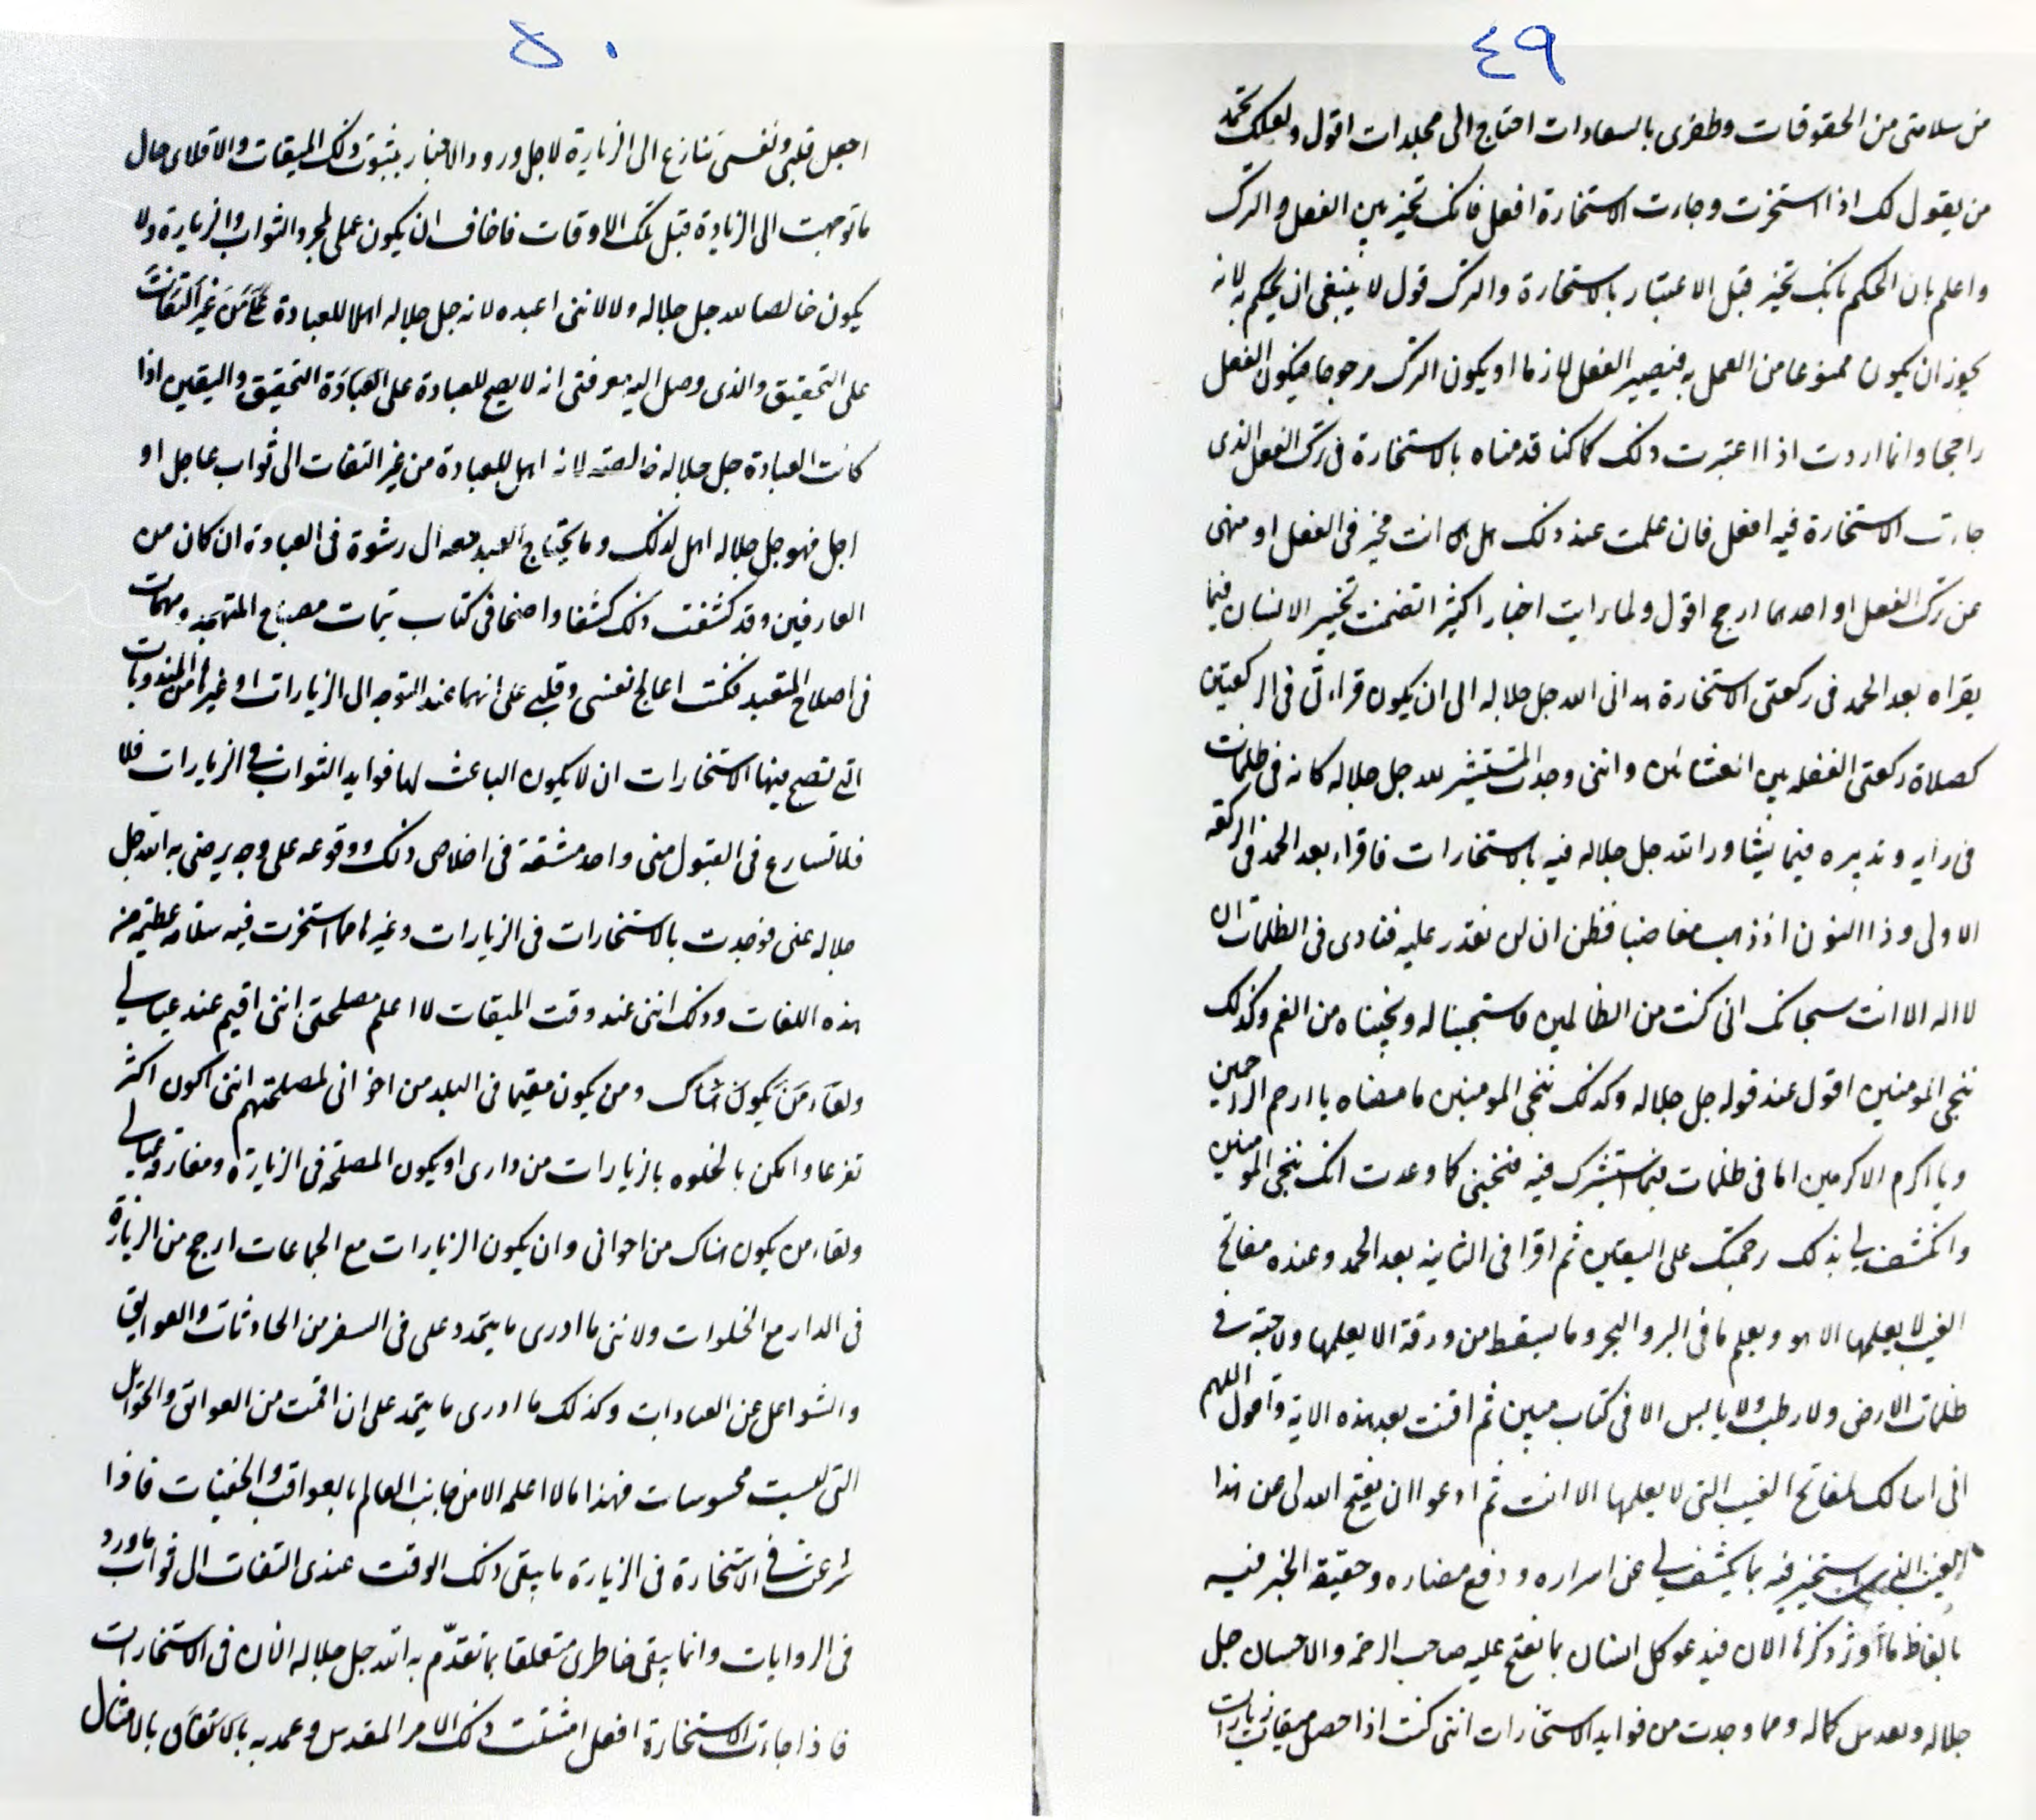 ٤٩
من سلامتى من الحقوقات وظفرى بالسعادات احتاج الى مجلدات اقول ولعلك تجد
من يقول لك اذا استخرت وجاءت الاستخارة افعل فانك تخير بين الفعل والترك
واعلم بان الحكم بانك تخير قبل الاعتبار بالاستخارة والترك قول لا ينبغى ان يحكم به لانه
يجوز ان يكون ممنوعا من العمل به فيصير الفعل لازما او يكون الترك مرجوحا فيكون الفعل
راجحا وانما اردت اذا اعتبرت ذلك كما كنا قدمناه بالاستخارة فى ترك الفعل الذى
جاءت الاستخارة فيه افعل فان علمت عند ذلك هل انت مخير فى الفعل او منهى
عن ترك الفعل او احدهما ارجح اقول ولما رايت اخبار اكثيرا تضمنت تخيير الانسان فيما
يقراه بعد الحمد فى ركعتى الاستخارة هدانى الله جل جلاله الى ان يكون قراءتى فى الركعتين
كصلاة ركعتى الغفله بين العشائين واننى وجدت المستشير لله جل جلاله كانه فى ظلمات
فى رايه وتدبيره فيما يشاور الله جل جلاله فيه بالاستخارات فاقراء بعد الحمد فى الركعة
الاولى وذا النون اذ ذهب مغاضبا فظن ان لن نقدر عليه فنادى فى الظلمات ان
لا اله الا انت سبحانك انى كنت من الظالمين فاستجبنا له ونجيناه من الغم وكذلك
ننجى المومنين اقول عند قوله جل جلاله وكذلك ننجى المومنين ما معناه يا ارحم الراحمين
ويا اكرم الاكرمين انا فى ظلمات فيما استشيرك فيه فنجنى كما وعدت انك ننجى المومنين
واكشف لى بذلك رحمتك على اليقين ثم اقرا فى الثانيه بعد الحمد وعنده مفاتح
الغيب لا يعلمها الا هو ويعلم ما فى البر والبحر وما يسقط من ورقة الا يعلمها ولا حبة فى
ظلمات الارض ولا رطب ولا يابس الا فى كتاب مبين ثم اقنت بعد هذه الاية واقول اللهم
انى اسالك بمفاتح الغيب التى لا يعلمها الا انت ثم ادعو ان يفتح الله لى من هذا
الغيب الذى استخيره فيه بما يكشف لى عن اسراره ودفع مضاره وحقيقة الخير فيه
بالفاظ ما ذكرها الان فيدعو كل انسان بما يفتح عليه صاحب الرحمة والاحسان جل
جلاله وتقدس كماله ومما وجدت من فوايد الاستخارات اننى كنت اذا حصل ميقات زيارات
٥٠
اجعل قلبى ونفسى تنازع الى الزيارة لاجل ورود الاخبار بثبوت ذلك الميقات والا فلاى حال
ما توجهت الى الزيارة قبل تلك الاوقات فاخاف ان يكون عملى لمجرد الثواب والزيارة ولا
يكون خالصا لله جل جلاله ولا لاننى اعبده لانه جل جلاله اهلا للعبادة من غير التفات
على التحقيق والذى وصل اليه معرفتى انه لا يصح للعبادة على العبادة التحقيق واليقين اذا
كانت العبادة جل جلاله خالصة لانه اهل للعبادة من غير التفات الى ثواب عاجل او
اجل فهو جل جلاله اهل لذلك وما يحتاج العبد معه الى رشوة فى العبادة ان كان من
العارفين وقد كشفت ذلك كشفا واضحا فى كتاب تتمات مصباح المتهجد ومهمات
فى اصلاح المتعبد فكنت اعالج نفسى وقلبى على انهما عند التوجه الى الزيارات او غيرها من المندوبات
التى تصح فيها الاستخارات ان لا يكون الباعث لها فوايد الثواب فى الزيارات فلا
فلا تسارع فى القبول منى واحد مشقة فى اخلاص ذلك ووقوعه على وجه يرضى به الله جل
جلاله عنى فوجدت بالاستخارات فى الزيارات وغيرها مما استخرت فيه سلامة عظيمة من
هذه اللغات وذلك اننى عند وقت الميقات لا اعلم مصلحتى اننى اقيم عند عيالى
ولقاء من يكون هناك ومن يكون مقيما فى البلد من اخوانى لمصلحتهم اننى اكون اكثر
تفرغا وامكن بالخلوه بالزيارات من دارى او يكون المصلحة فى الزيارة ومفارقة عيالى
ولقاء من يكون هناك من اخوانى وان يكون الزيارات مع الجماعات ارجح من الزيارة
فى الدار مع الخلوات ولاننى ما ادرى ما يتجدد على فى السفر من الحادثات والعوايق
والشواغل عن العبادات وكذلك ما ادرى ما يتجد على ان اقمت من العوائق والحوائل
التى ليست محسوسات فهذا ما لا اعلمه الا من جانب العالم بالعواقب والخفيات فاذا
شرعت فى الاستخارة فى الزيارة ما يبقى ذلك الوقت عندى التفات الى ثواب ما ورد
فى الروايات وانما يبقى خاطرى متعلقا بما تقدّم به الله جل جلاله الان فى الاستخارات
فاذا جاءت الاستخارة افعل امتثلت ذلك الامر المقدس وعمدت به بالامتثال